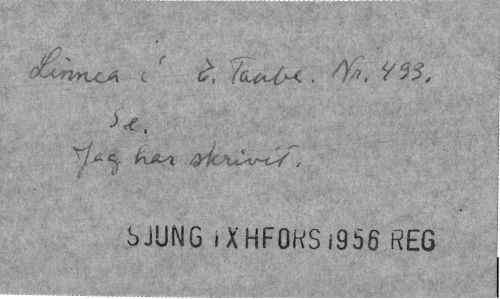 Linnea i E. Taube. Nr. 493.
Se.
Jag har skrivit.
SJUNG IX HFORS 1956 REG